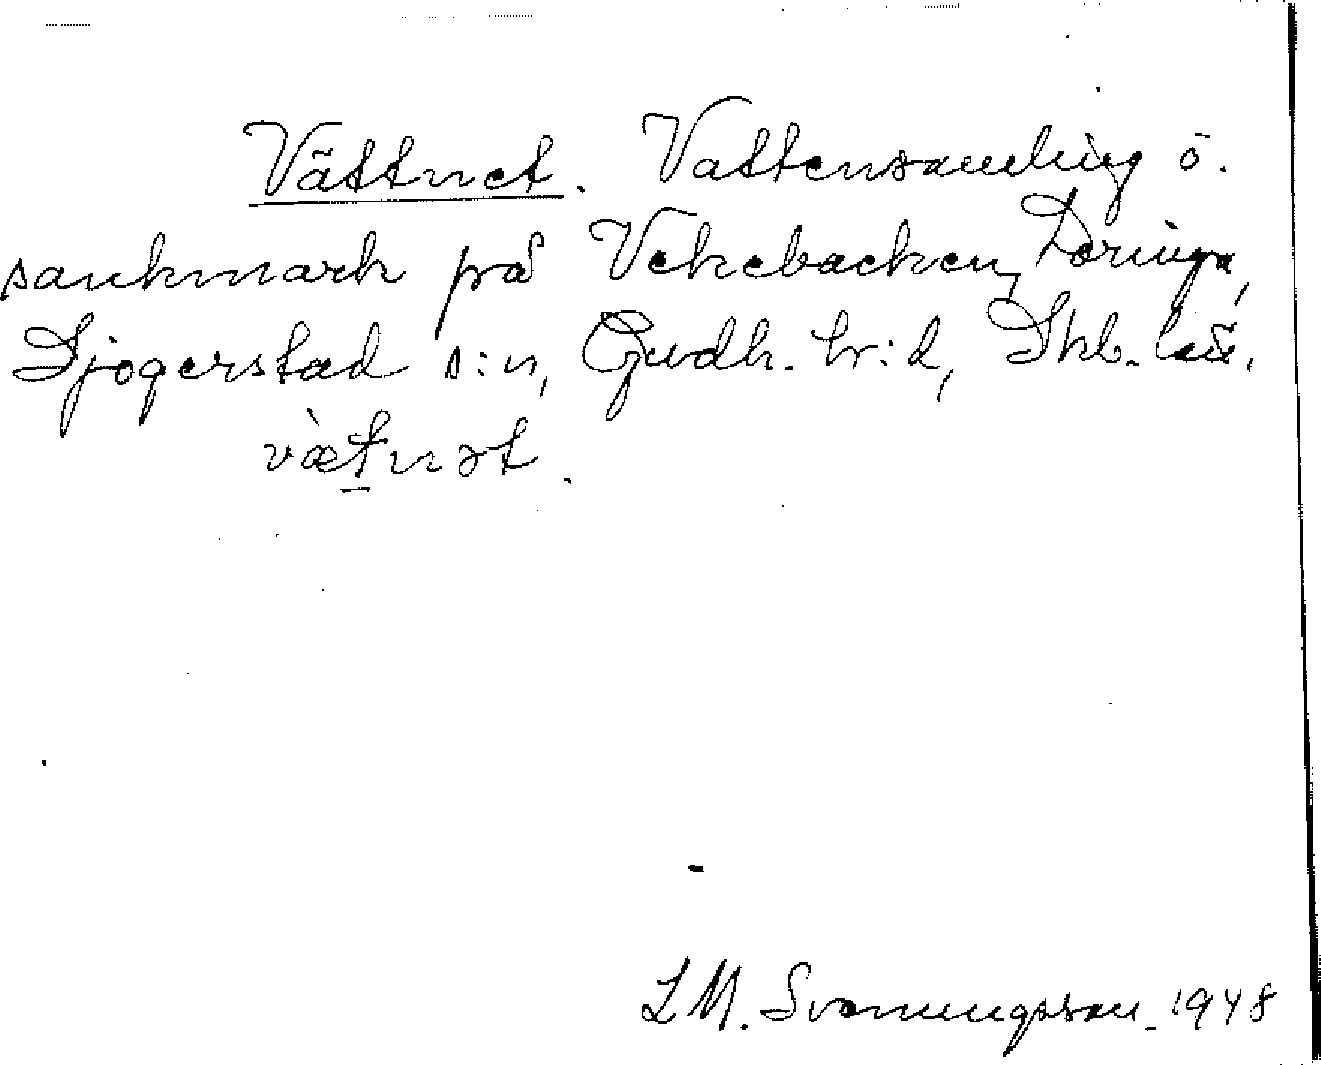 Vättnet. Vattensamling o.
sankmark på Vekebacken, Doringa,
Sjogerstad s:n, Gudh. hr:d, Skb. län.
vætnət.
L M. Svenungsson 1948